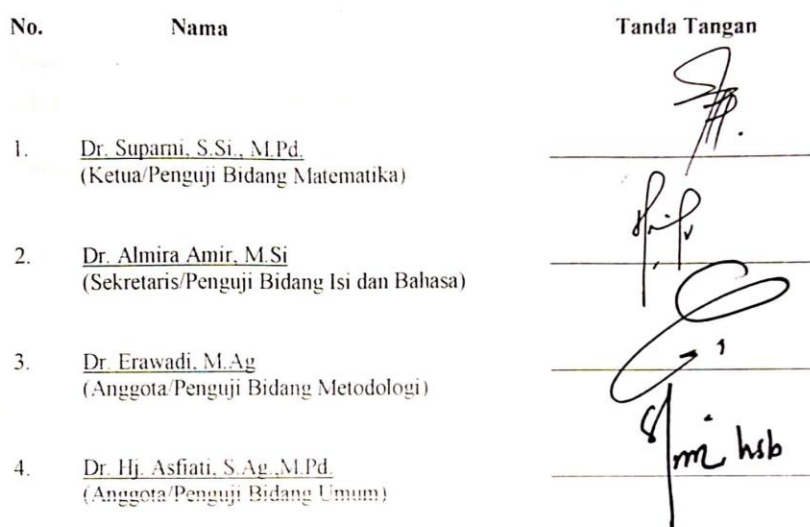 No. Nama Tanda Tangan
1. Dr. Suparni, S.Si., M.Pd.
(Ketua/Penguji Bidang Matematika)
2. Dr. Almira Amir, M.Si
(Sekretaris/Penguji Bidang Isi dan Bahasa)
3. Dr. Erawadi, M.Ag
(Anggota/Penguji Bidang Metodologi)
4. Dr. Hj. Asfiati, S.Ag.,M.Pd.
(Anggota/Penguji Bidang Umum)
hsb